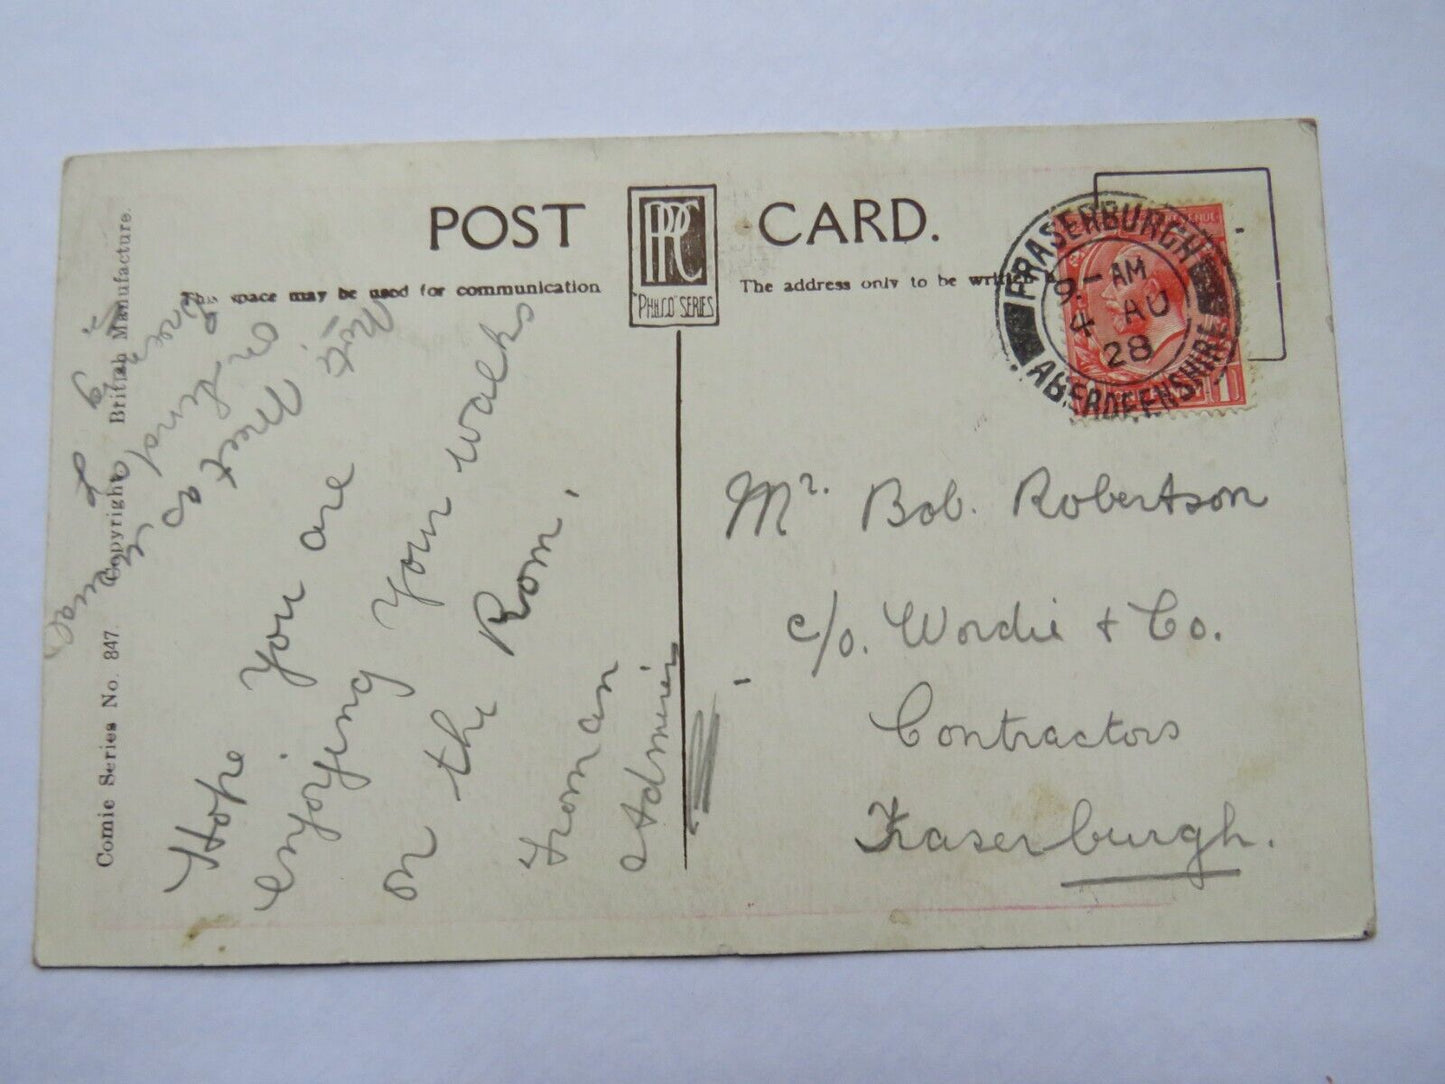 POST CARD.
PPC
"PHILCO" SERIES
This space may be used for communication
The address only to be
FRASERBURGH
9 - AM
4 AU
28
ABERDEENSHIRE
1
Mr. Bob. Robertson
c/o. Wordie & Co.
Contractors
Fraserburgh.
Hope you are
enjoying your walks
on the Room.
From an
Admirer
Comic Series No. 847. Copyright British Manufacture.